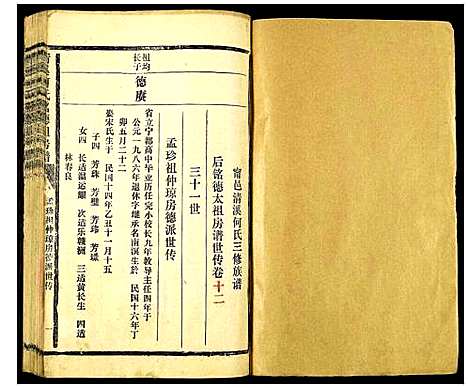 甯邑清溪何氏三修族谱
后铭德太祖房谱世传卷十二
三十一世
孟珍祖仲琼房德派世传
祖均
长子
德庚
省立宁都高中毕业历任完小校长九年教导主任四年于
公元一九八六年退休字继承名南溟生於 民国十六年丁
卯五月二十二
娶宋氏生于 民国十四年乙丑十一月十五
子四 芳珠 芳璧 芳玮 芳璟
女四 长适温运耀 次适乐赣 三适黄长生 四适
林春良
孟珍祖仲琼房德派世传